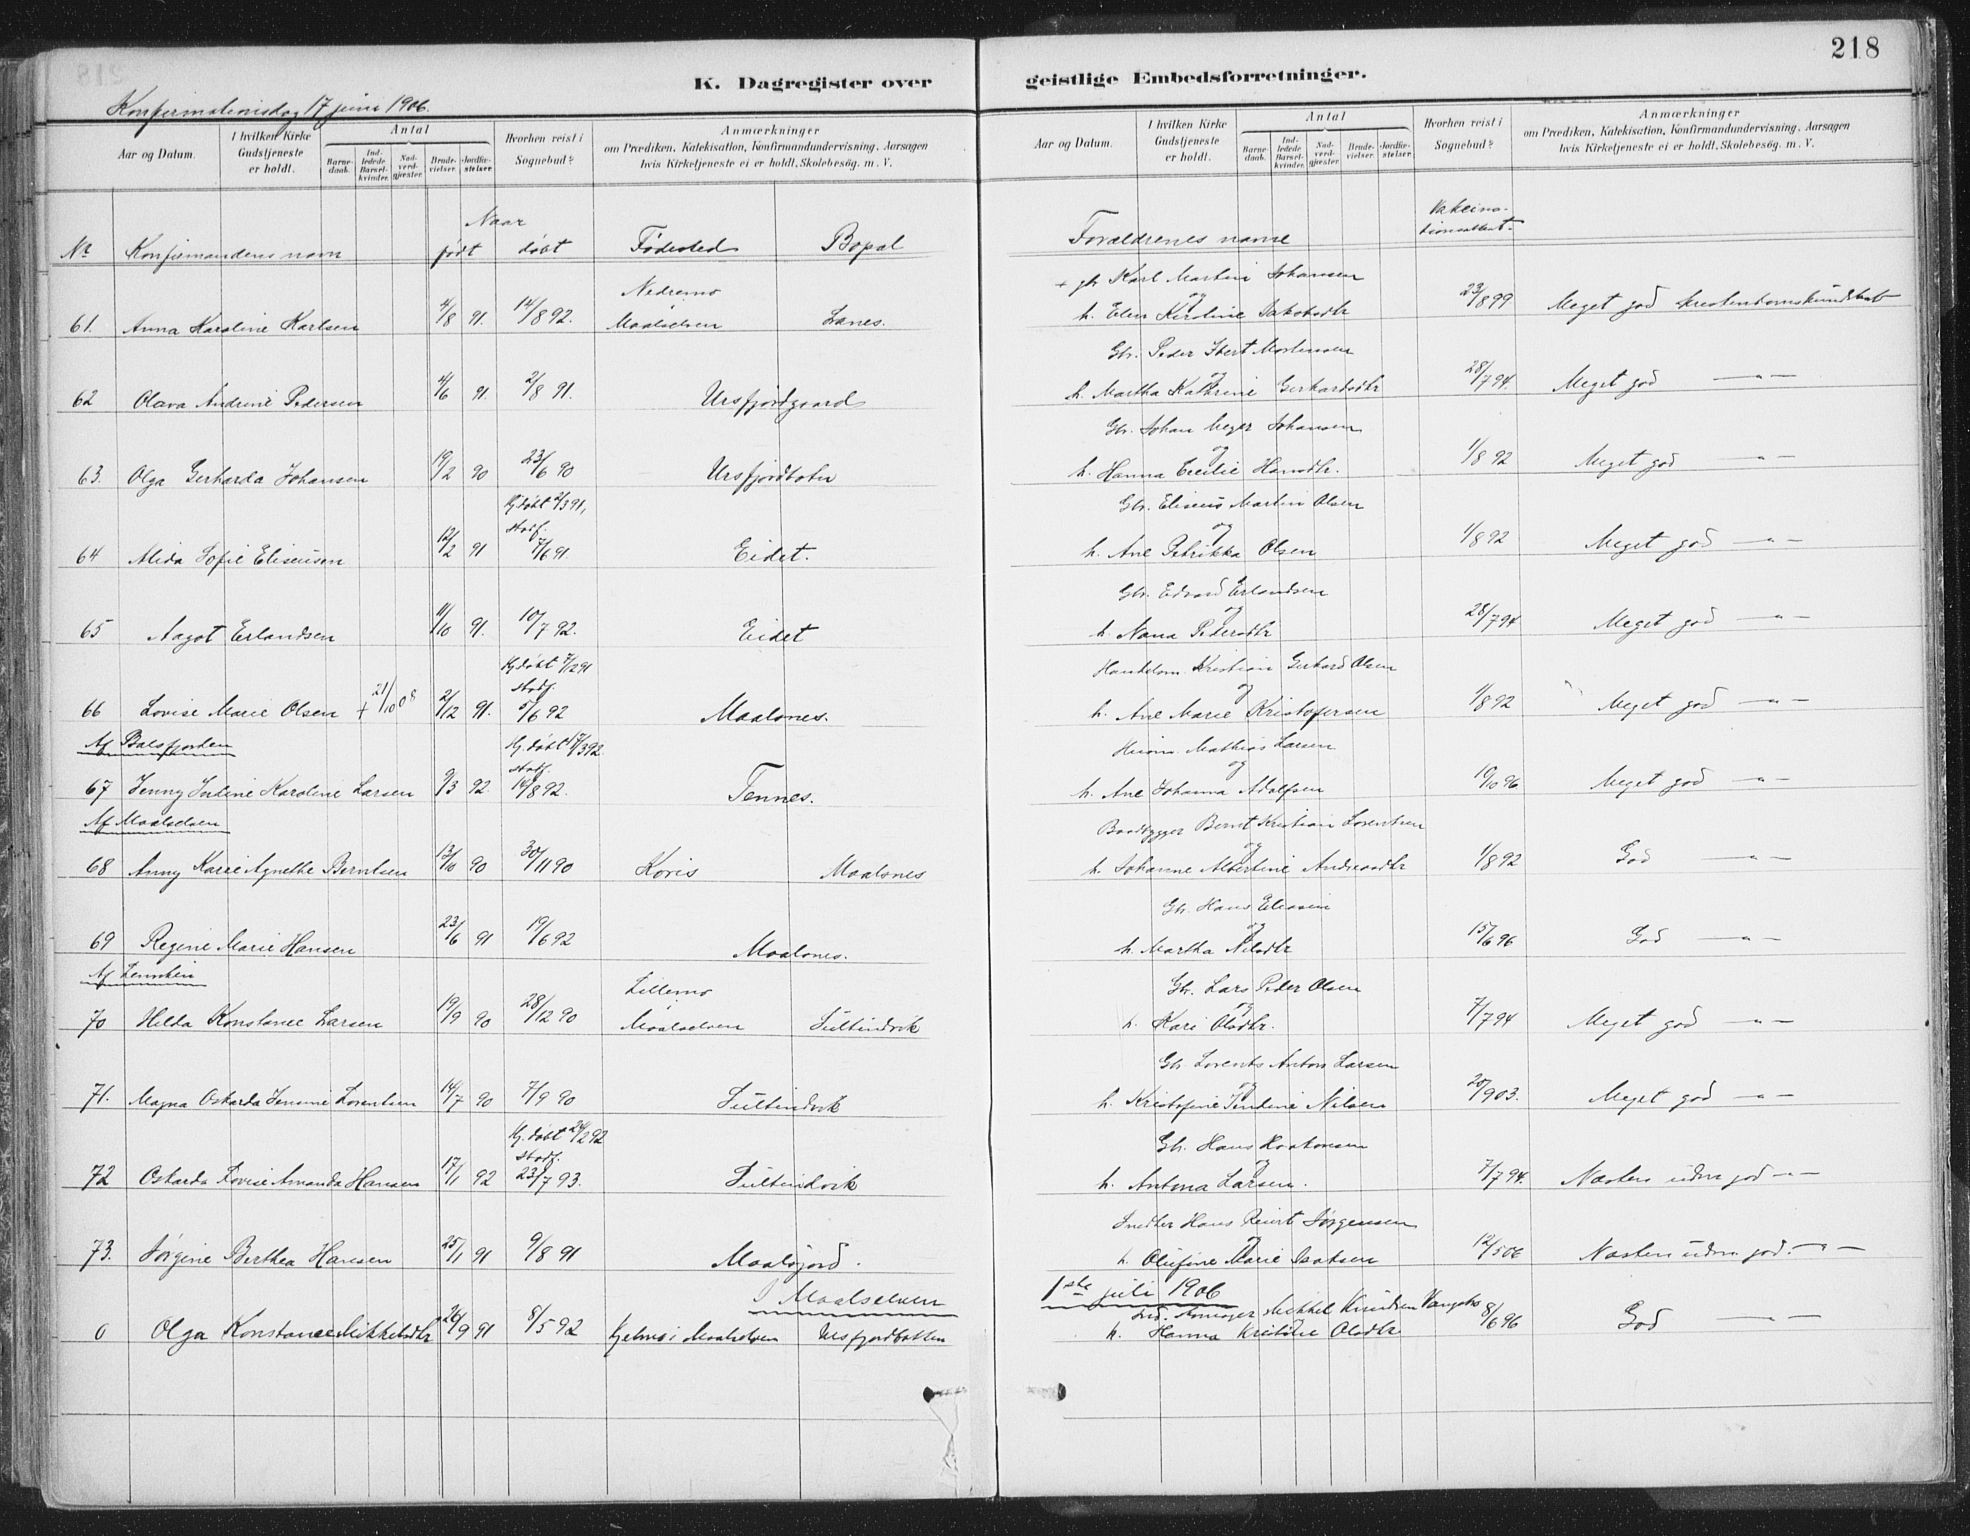 218
K. Dagregister over geistlige Embedsforretninger.
Konfirmationsdag 17 juni 1906.
Aar og Datum. I hvilken Kirke Gudstjeneste er holdt. Antal Barnedaab. Indledede Barselkvinder. Nadvergjæster Brudevielser. Jordfæstelser. Hvorhen reist i Sognebud? Anmærkninger om Prædiken, Katekisation, Konfirmandundervisning, Aarsagen hvis Kirketjeneste ei er holdt, Skolebesøg. m. V.
Aar og Datum. I hvilken Kirke Gudstjeneste er holdt. Antal Barnedaab. Indledede Barselkvinder. Nadvergjæster Brudevielser. Jordfæstelser. Hvorhen reist i Sognebud? Anmærkninger om Prædiken, Katekisation, Konfirmandundervisning, Aarsagen hvis Kirketjeneste ei er holdt. Skolebesøg. m. V.
Naar
No Konfirmandens navn født døbt Fødested Bopæl Forældrenes navne Vakcinationsattest.
+ gbr Karl Martin Johansen
Nedremo
61. Anna Karoline Karlsen 4/8 91. 14/8 92. Maalselven Lanes. og h. Elen Kirstine Jakobsdtr 23/8 99 Meget god kristendomskundskab
Gbr. Peder Ebert Mortensen
62 Olava Andrine Pedersen 4/6 91. 2/8 91. Ursfjordgaard og h. Martha Kathrine Gerhardsdtr 28/7 94. Meget god — " —
Gbr. Johan Meyer Johansen
63. Olga Gerharda Johansen 19/2 90 23/6 90 Ursfjordboten og h. Hanna Cecilie Hansdtr. 1/8 92 Meget god — " —
Hj. døbt 2/3 91, stadf. Gbr. Eliseus Martin Olsen
64 Alida Sofie Eliseusen 12/2 91 7/6 91 Eidet. og h. Ane Petrikka Olsen 1/8 92 Meget god — " —
Gbr. Edvard Erlandsen
65 Aagot Erlandsen 11/10 91. 10/7 92. Eidet og h. Nana Pedersdtr 28/7 94 Meget god — " —
Hj. døbt 7/12 91 stadf. Handelsm. Kristian Gerhard Olsen
66 Lovise Marie Olsen + 21/10 08 2/12 91. 5/6 92 Maalsnes. og h. Ane Marie Kristofersen 1/8 92 Meget god — " —
Af Balsfjorden
Hj. døbt 17/3 92 stadf. Husm. Mathias Larsen
67 Jenny Indine Karoline Larsen 9/3 92. 14/8 92. Tennes. og h. Ane Johanna Adolfsen 19/10 96 Meget god — " —
Af Maalselven
Baadbygger Bernt Kristian Lorentsen
68 Anny Karie Agnethe Berntsen 13/10 90 30/11 90 Koris Maalsnes og h. Johanne Albertine Andreasdtr 1/8 92 God — " —
Gbr. Hans Eliasen
69 Regine Marie Hansen 23/6 91 19/6 92 Maalsnes. og h. Martha Nilsdtr 15/6 96 God — " —
Af Lenviken
Lillemo Gbr. Lars Peder Olsen
70 Hilda Konstance Larsen 19/9 90 28/12 90 Maalselven Sultindvik og h. Kari Olsdtr. 7/7 94 Meget god — " —
Gbr. Lorents Anton Larsen
71. Magna Oskarda Jensine Lorentsen 14/7 90 7/9 90 Sultindvik og h. Kristofine Jentine Nilsen 20/9 03. Meget god — " —
Hj. døbt 24/2 92 stadf. Gbr. Hans Haakonsen
72 Oskarda Lovise Amanda Hansen 17/1 92 23/7 93. Sultindvik og h. Antona Larsen. 7/7 94. Næsten udm. god — " —
Snedker Hans Reiert Jørgensen
73. Jørgine Berthea Hansen 25/1 91 9/8 91 Maalsjord. og h. Olufine Marie Isaksen 12/5 06 Næsten udm. god. — " —
I Maalselven 1ste juli 1906
0 Olga Konstance Mikkelsdtr 26/9 91 8/5 92 Maalselven Ursfjordbotten Mikkel Knudsen h. Hanna Kristine Olsdtr 8/6 96 God — " —